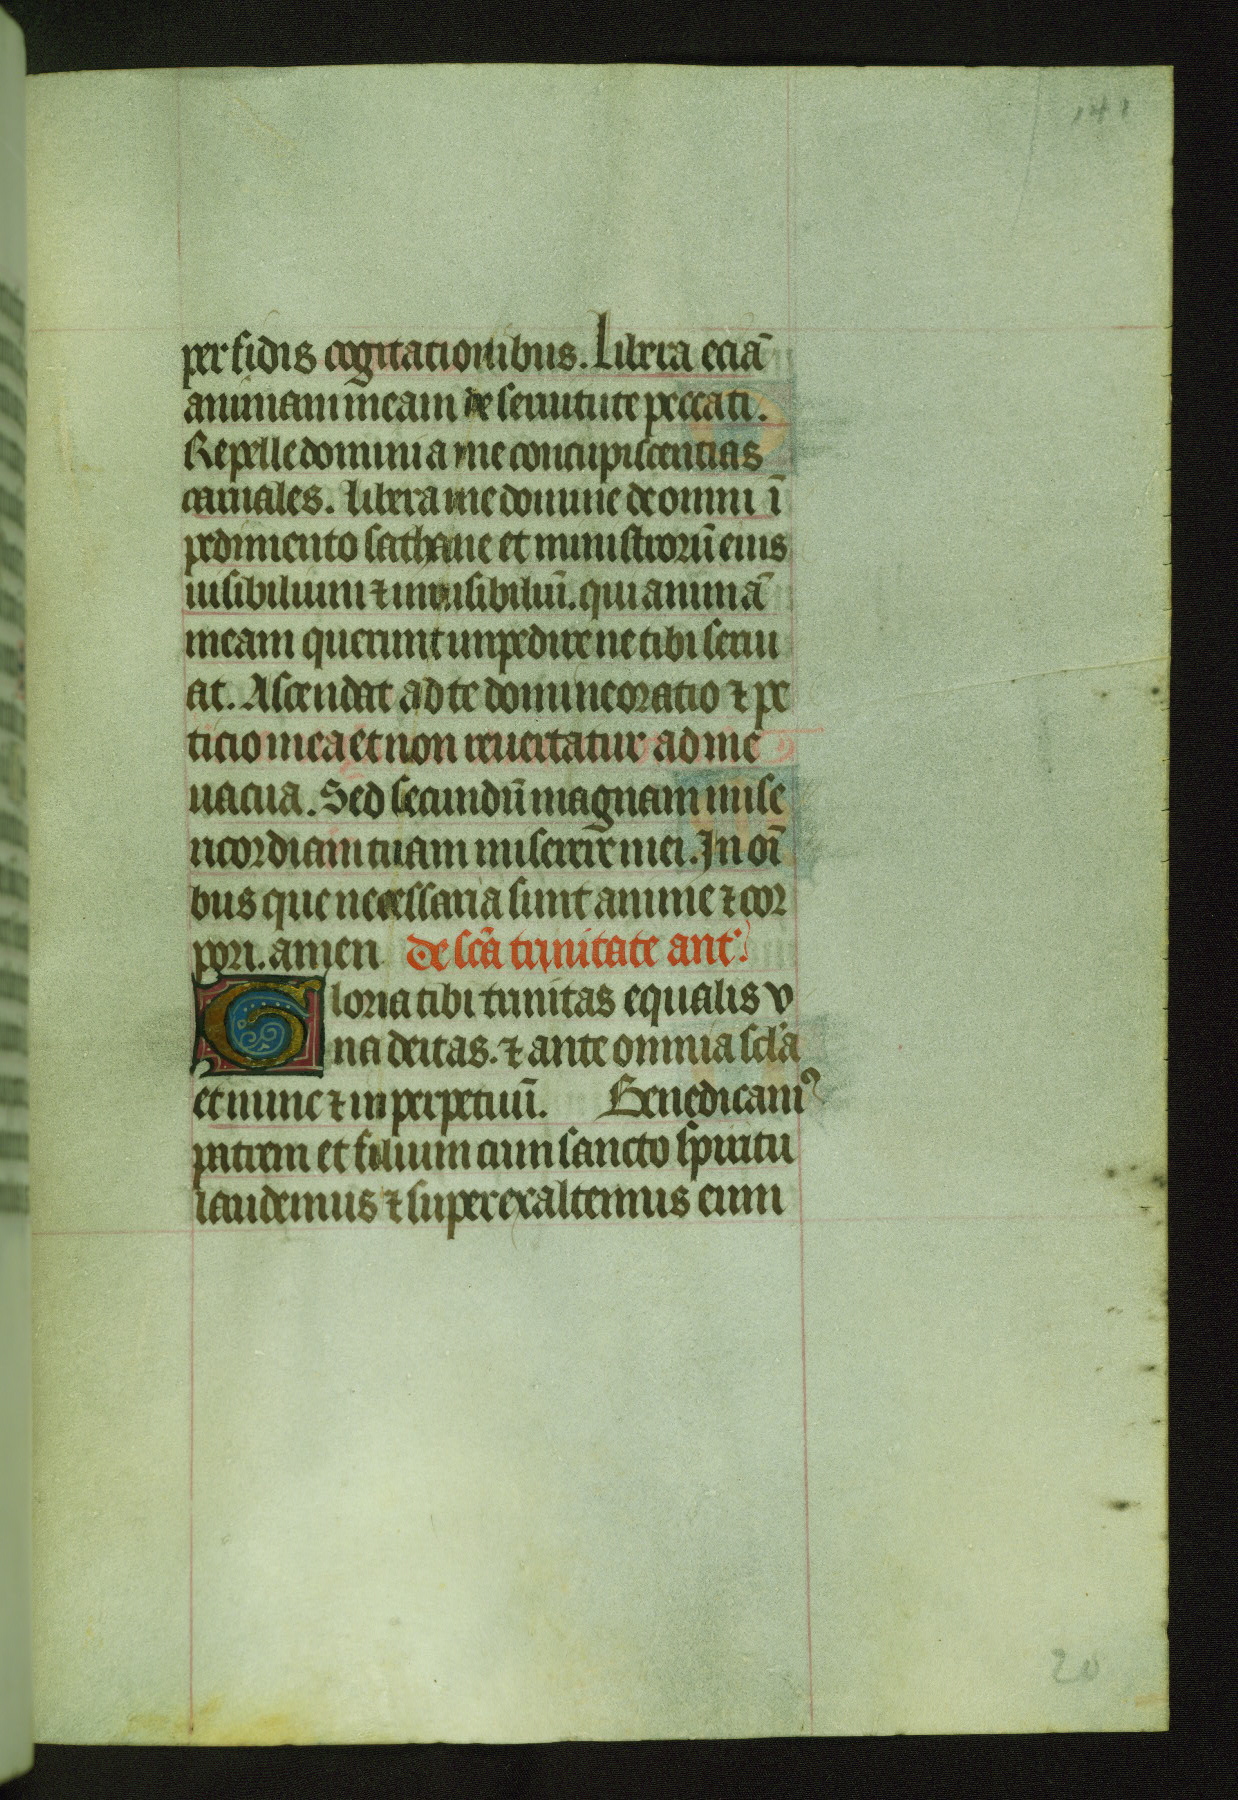 141
perfidis cogitationibus. Libera eciā
animam meam de seruitute peccati.
Repelle domini a me concupiscentias
carnales. Libera me domine de omni ī
pedimento sathane et ministrorū eius
uisibilium ⁊ inuisibiliū. qui animā
meam querunt impedire ne tibi serui
at. Ascendat ad te domine oratio ⁊ pe
ticio mea et non reuertatur ad me
uacua. Sed secundū magnam mise
ricordiam tuam miserere mei. In oī
bus que necessaria sunt anime ⁊ cor
pori. amen de scā trinitate ant.
Gloria tibi trinitas equalis v
na deitas. ⁊ ante omnia scl'a
et nunc ⁊ in perpetuū. Benedicamꝰ
patrem et filium cum sancto spiritu
laudemus ⁊ superexaltemus eum
20